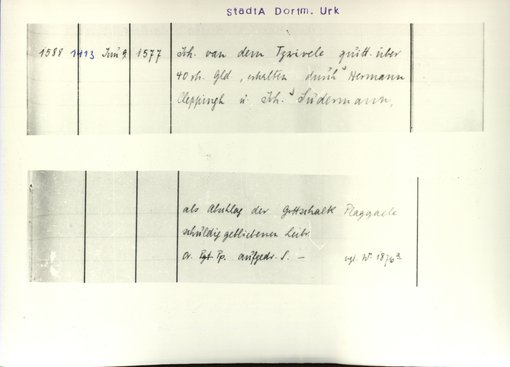 StadtA Dortm. Urk
1588 1413 Juni 9. 1577 Joh. van dem Tzwivele quitt. über
40 rh. Gld, erhalten durch Hermann
Cleppingh u. Joh. Südermann,
als Abschlag der Gottschalk Plaggaele
schuldig gebliebenen Leibr.
Or. Pap. aufgedr. S. — vgl. Nº 1876a